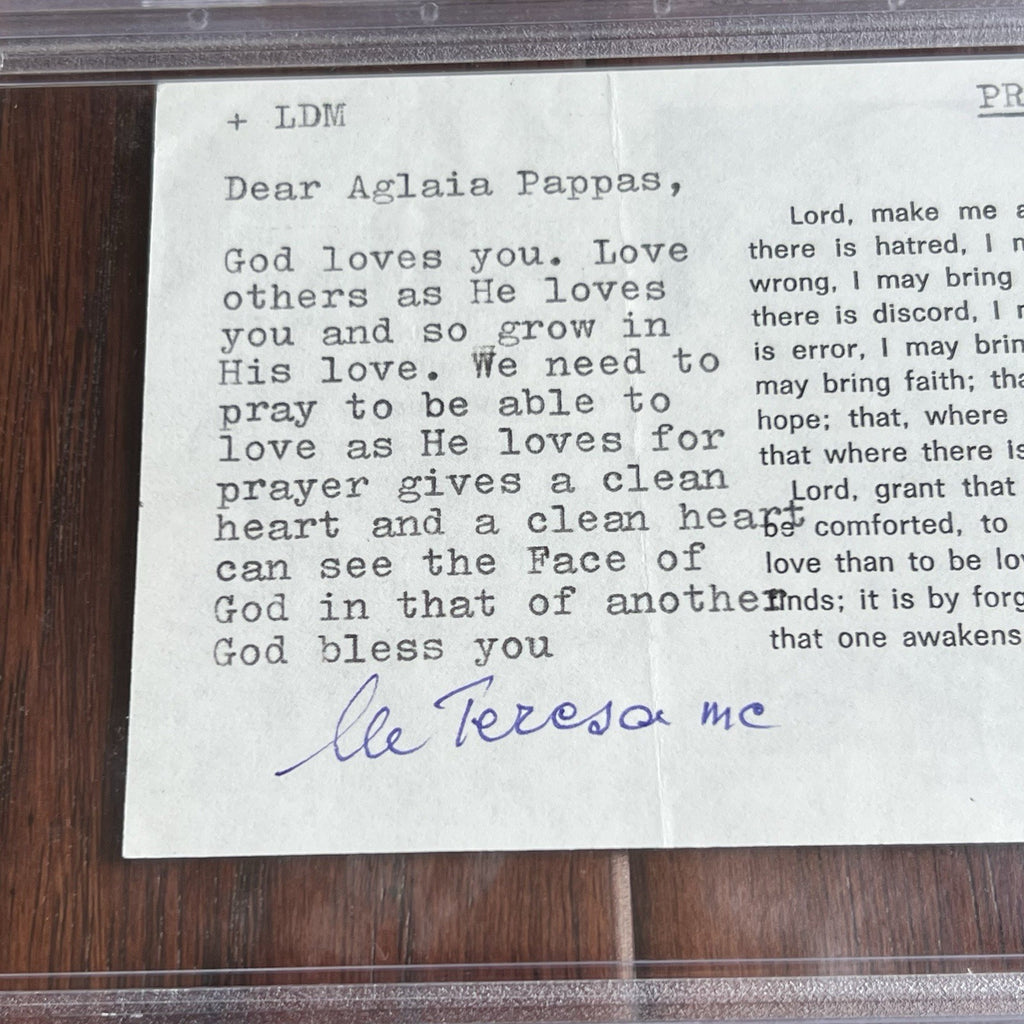 + LDM
Dear Aglaia Pappas,
God loves you. Love
others as He loves
you and so grow in
His love. We need to
pray to be able to
love as He loves for
prayer gives a clean
heart and a clean heart
can see the Face of
God in that of another
God bless you
Teresa mc
PR
Lord, make me a
there is hatred, I m
wrong, I may bring
there is discord, I m
is error, I may brin
may bring faith; tha
hope; that, where
that where there is
Lord, grant that
be comforted, to
love than to be lov
finds; it is by forg
that one awakens